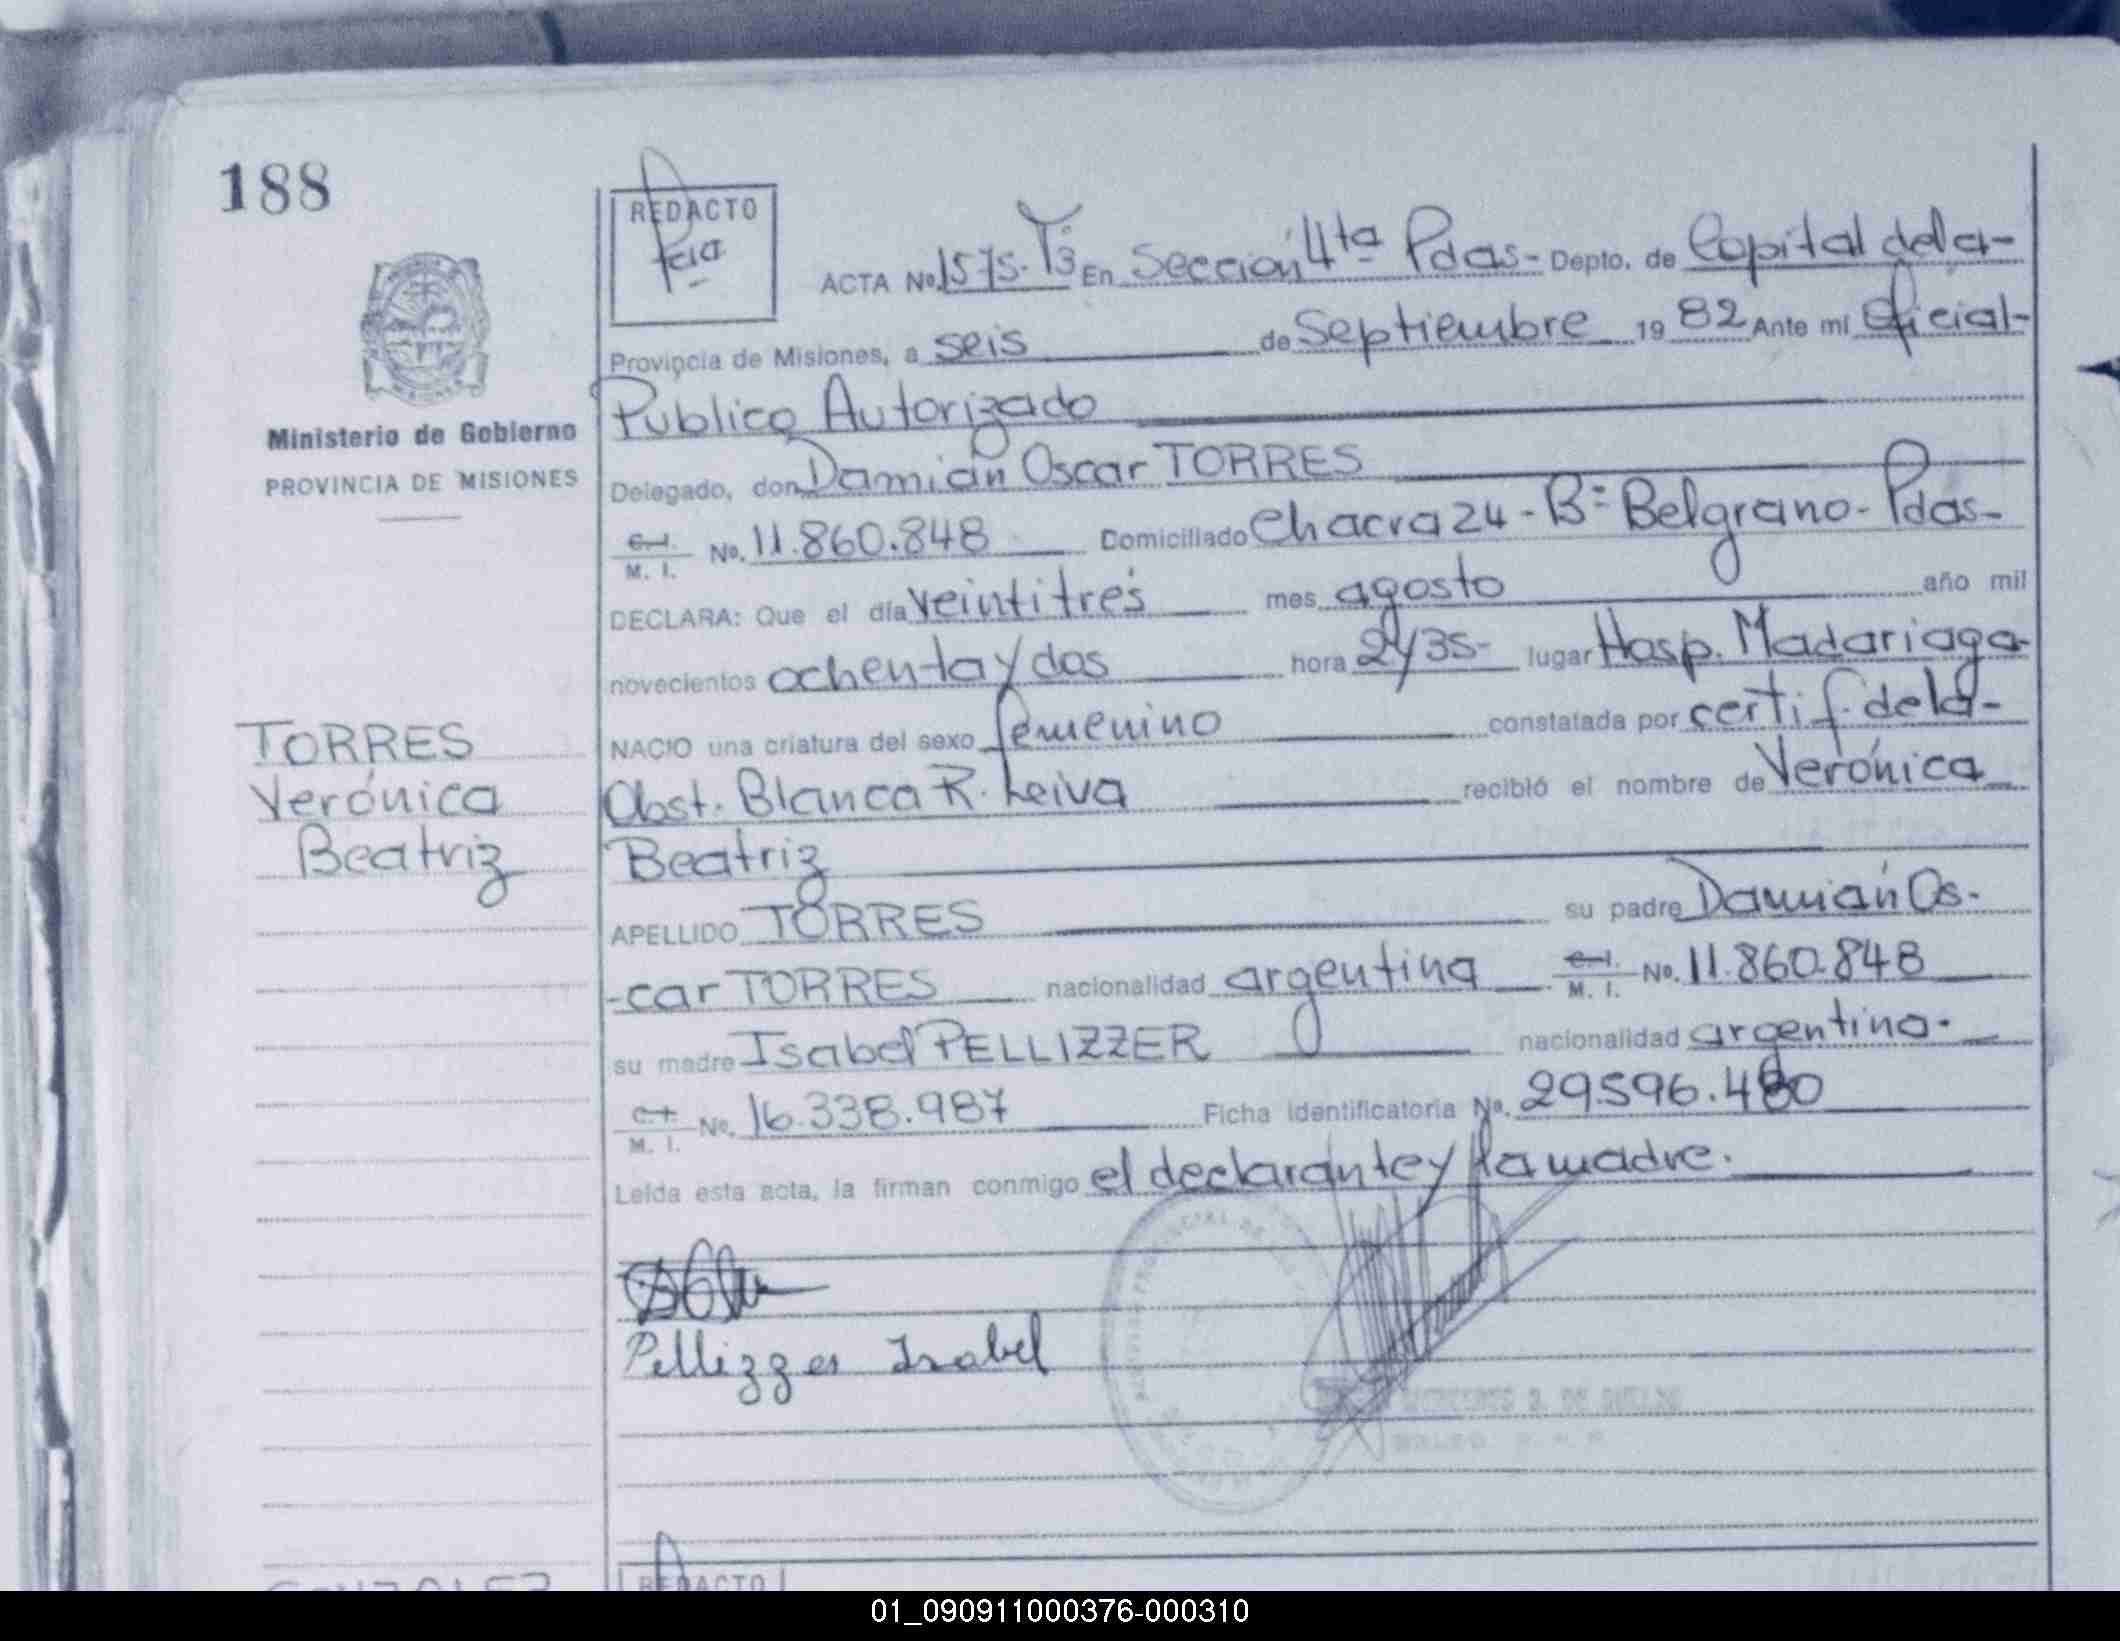 188
REDACTO
ACTA No. 1575. T3 En Sección 4ta Pdas- Depto. de Capital de la-
Provincia de Misiones, a seis de Septiembre 19 82 Ante mí Oficial-
Publico Autorizado
Ministerio de Gobierno
PROVINCIA DE MISIONES
Delegado, don Damián Oscar TORRES
C.I. M. I. No. 11.860.848 Domiciliado Chacra 24 - Bº Belgrano - Pdas-
DECLARA: Que el día veintitrés mes agosto año mil
novecientos ochenta y dos hora lugar Hosp. Madariaga-
NACIO una criatura del sexo femenino constatada por certif. de la-
Obst. Blanca R. Leiva recibió el nombre de Verónica
Beatriz
TORRES
Verónica
Beatriz
APELLIDO TORRES su padre Damián Os-
-car TORRES nacionalidad argentina C.I. M. I. No. 11.860.848
su madre Isabel PELLIZZER nacionalidad argentina.
C.I. M. I. No. 16.338.987 Ficha identificatoria No. 29.596.480
Leída esta acta, la firman conmigo el declarante y la madre.
Pellizzer Isabel
REDACTO
01_090911000376-000310